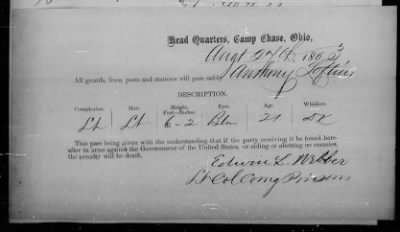 Head Quarters, Camp Chase, Ohio,
Augt 27th 1863
All guards, lines, posts and stations will pass safely
Anthony
DESCRIPTION.
Complexion. Hair. Height, Feet—Inches. Eyes. Age. Whiskers.
Lt Lt 6-2 Blu 21
This pass being given with the understanding that if the party receiving it be found hereafter in arms against the Government of the United States, or aiding or abetting so enemies,
the penalty will be death.
Edwin L. Webber
Lt Col Comg Prisons